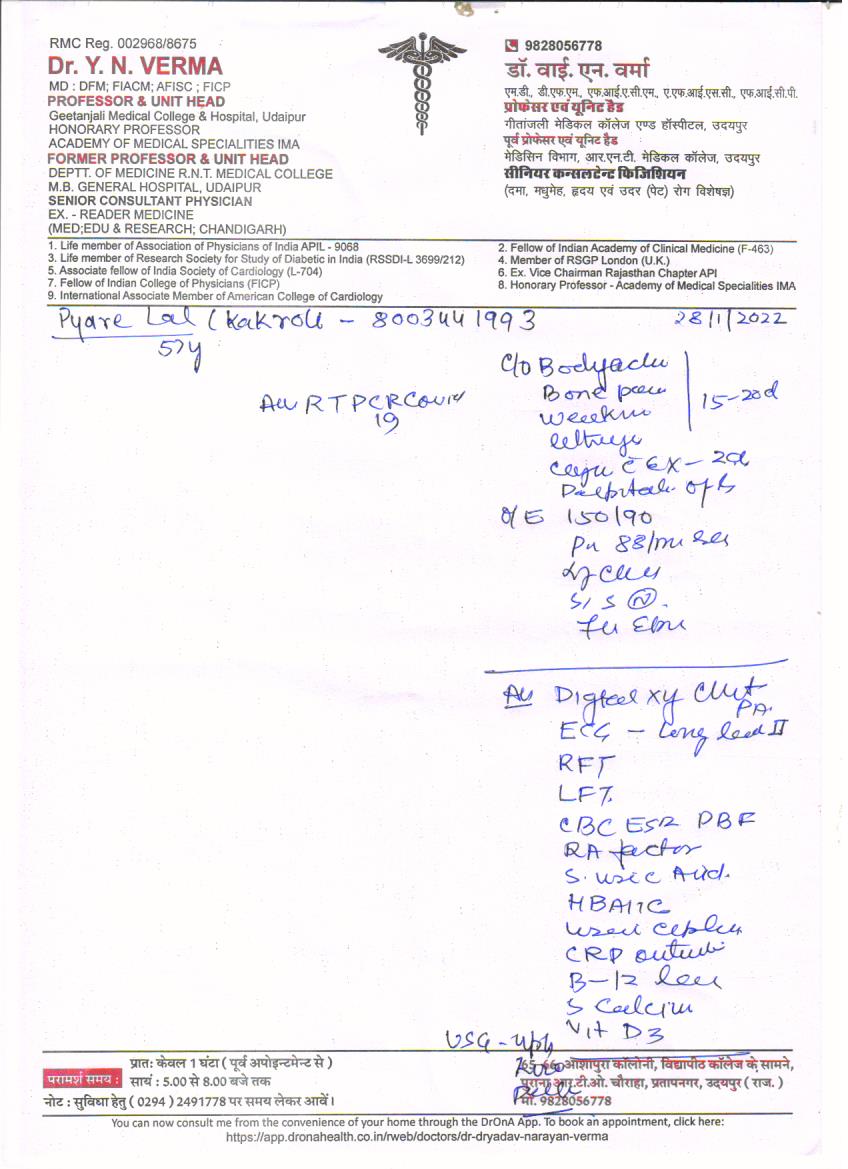 RMC Reg. 002968/8675
Dr. Y. N. VERMA
MD : DFM; FIACM; AFISC ; FICP
PROFESSOR & UNIT HEAD
Geetanjali Medical College & Hospital, Udaipur
HONORARY PROFESSOR
ACADEMY OF MEDICAL SPECIALITIES IMA
FORMER PROFESSOR & UNIT HEAD
DEPTT. OF MEDICINE R.N.T. MEDICAL COLLEGE
M.B. GENERAL HOSPITAL, UDAIPUR
SENIOR CONSULTANT PHYSICIAN
EX. - READER MEDICINE
(MED;EDU & RESEARCH; CHANDIGARH)
9828056778
डॉ. वाई. एन. वर्मा
एम.डी., डी.एफ.एम., एफ.आई.ए.सी.एम., ए.एफ.आई.एस.सी., एफ.आई.सी.पी.
प्रोफेसर एवं यूनिट हैड
गीतांजली मेडिकल कॉलेज एण्ड हॉस्पीटल, उदयपुर
पूर्व प्रोफेसर एवं यूनिट हैड
मेडिसिन विभाग, आर.एन.टी. मेडिकल कॉलेज, उदयपुर
सीनियर कन्सलटेन्ट फिजिशियन
(दमा, मधुमेह, हृदय एवं उदर (पेट) रोग विशेषज्ञ)
1. Life member of Association of Physicians of India APIL - 9068
2. Fellow of Indian Academy of Clinical Medicine (F-463)
3. Life member of Research Society for Study of Diabetic in India (RSSDI-L 3699/212)
4. Member of RSGP London (U.K.)
5. Associate fellow of India Society of Cardiology (L-704)
6. Ex. Vice Chairman Rajasthan Chapter API
7. Fellow of Indian College of Physicians (FICP)
8. Honorary Professor - Academy of Medical Specialities IMA
9. International Associate Member of American College of Cardiology
Pyare Lal (Kakroli - 8003441993
28/1/2022
57y
RTPCR Covid
19
C/O Bodyache
Bone pain
15-20d
O/E 150/90
88/
S1 S2 (N).
Digital xy Chest
PA.
ECG - Long lead II
RFT
LFT.
CBC ESR PBF
RA factor
S. uric Acid.
HBA1C
CRP
B-12
S Calcium
Vit D3
USG -
परामर्श समय :
प्रात: केवल 1 घंटा ( पूर्व अपोइन्टमेन्ट से )
सायं : 5.00 से 8.00 बजे तक
नोट : सुविधा हेतु ( 0294 ) 2491778 पर समय लेकर आवें।
आशापुरा कॉलोनी, विद्यापीठ कॉलेज के सामने,
पुराना आर.टी.ओ. चौराहा, प्रतापनगर, उदयपुर ( राज. )
मो. 9828056778
You can now consult me from the convenience of your home through the DrOnA App. To book an appointment, click here:
https://app.dronahealth.co.in/rweb/doctors/dr-dryadav-narayan-verma